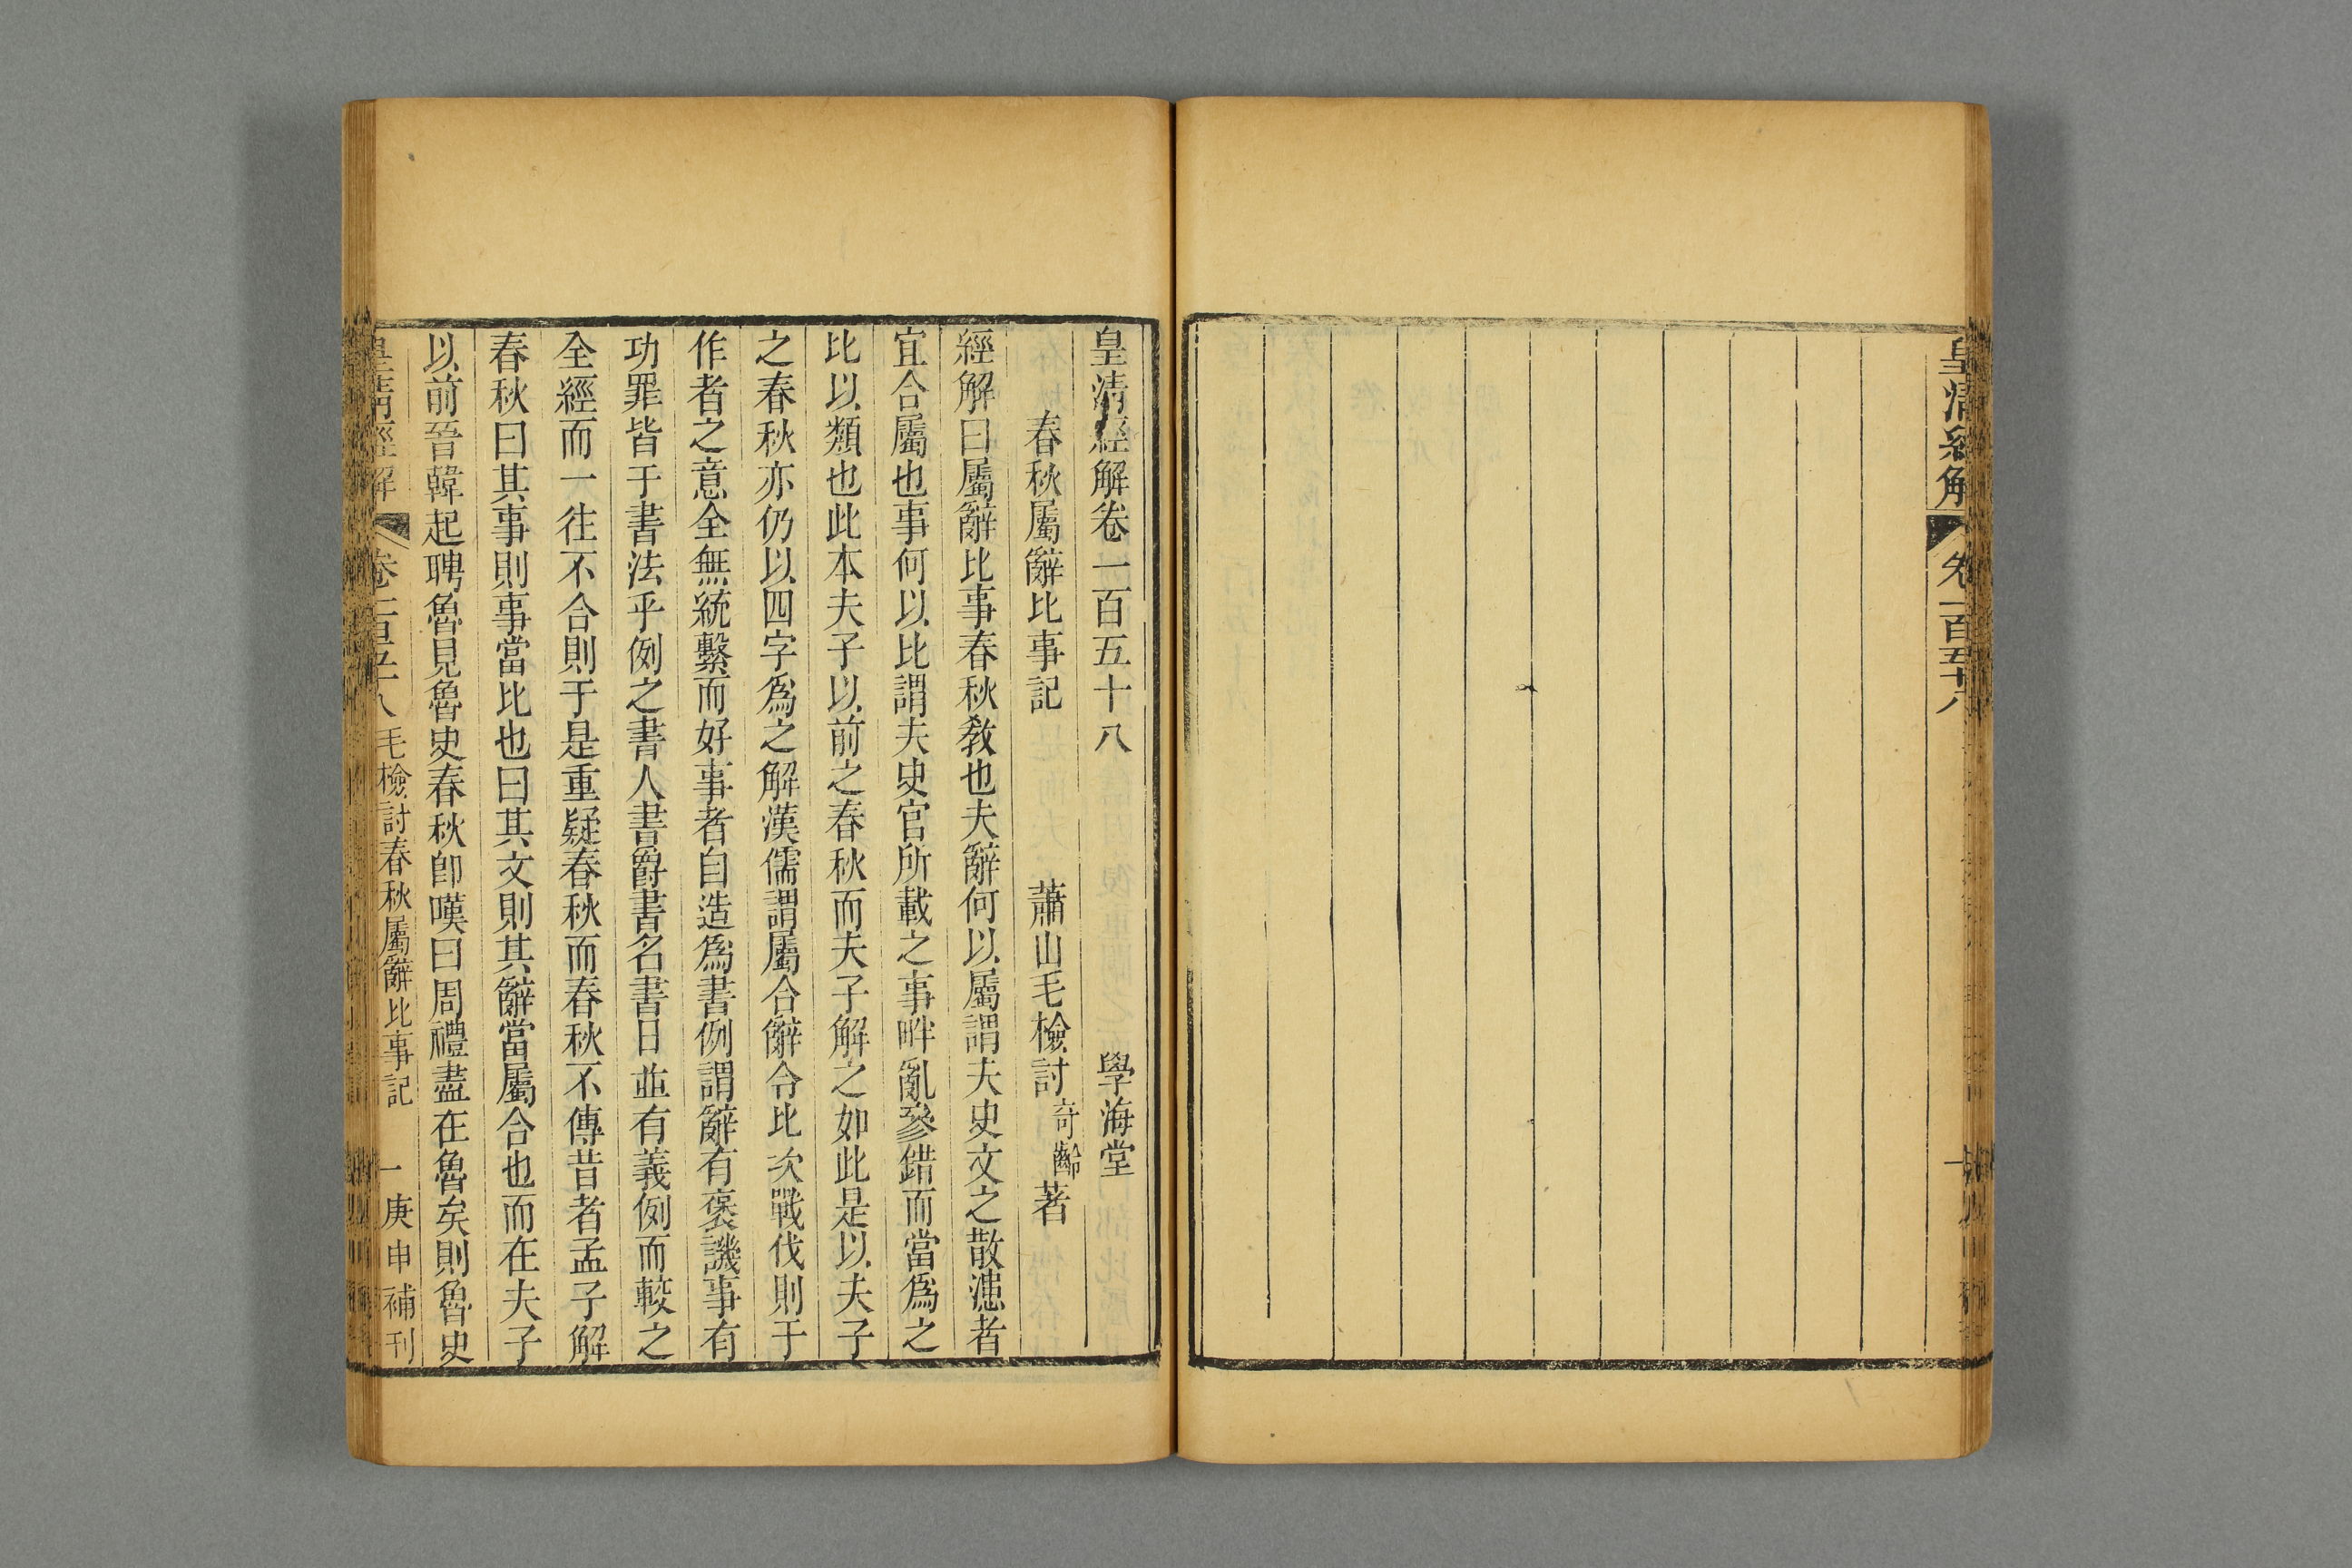 皇清經解
卷一百五十八
皇清經解卷一百五十八　學海堂
春秋屬辭比事記　蕭山毛檢討奇齡著
經解曰屬辭比事春秋教也夫辭何以屬謂夫史文之散漶者
宜合屬也事何以比謂夫史官所載之事畔亂參錯而當爲之
比以類也此本夫子以前之春秋而夫子解之如此是以夫子
之春秋亦仍以四字爲之解漢儒謂屬合辭令比次戰伐則于
作者之意全無統繫而好事者自造爲書例謂辭有褒譏事有
功罪皆于書法乎例之書人書爵書名書日並有義例而較之
全經而一往不合則于是重疑春秋而春秋不傳昔者孟子解
春秋曰其事則事當比也曰其文則其辭當屬合也而在夫子
以前晉韓起聘魯見魯史春秋卽嘆曰周禮盡在魯矣則魯史
皇清經解　卷一百五十八　毛檢討春秋屬辭比事記　一　庚申補刊